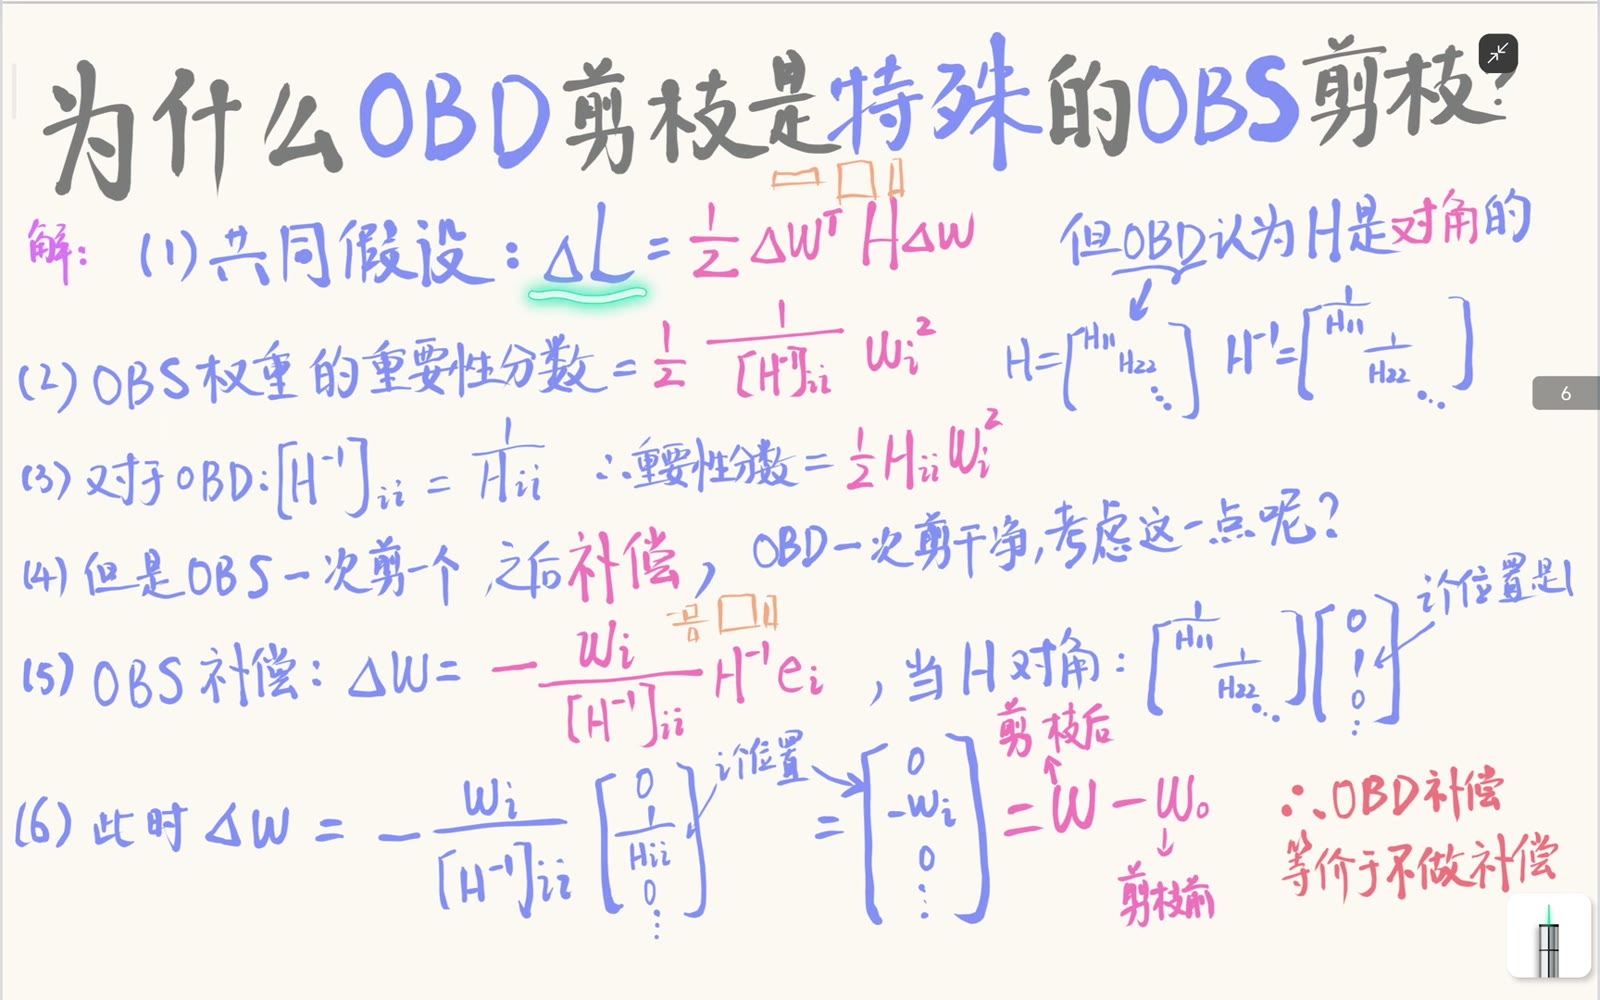 为什么OBD剪枝是特殊的OBS剪枝?
解: (1) 共同假设: ΔL = 1/2 ΔW^T H ΔW 但OBD认为H是对角的
(2) OBS权重的重要性分数 = 1/2 1/[H^-1]ii Wi^2 H=[H11 H22 ⋱] H^-1=[1/H11 1/H22 ⋱]
(3) 对于OBD: [H^-1]ii = 1/Hii ∴重要性分数 = 1/2 Hii Wi^2
(4) 但是OBS一次剪一个 之后补偿, OBD一次剪干净,考虑这一点呢?
i个位置是1
(5) OBS补偿: ΔW = - Wi/[H^-1]ii H^-1 ei , 当H对角: [1/H11 1/H22 ⋱] [0 1 0 ⋮]
剪枝后
i个位置
(6) 此时 ΔW = - Wi/[H^-1]ii [0 1/Hii 0 ⋮] = [0 -Wi 0 ⋮] = W - W0
剪枝前
∴OBD补偿
等价于不做补偿
6